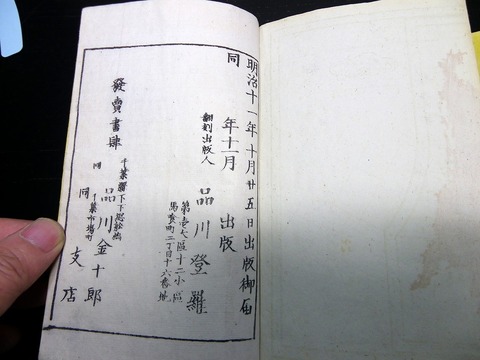 明治十一年十月廿五日出版御届
同
年十一月
出版
翻刻出版人
第壱大區十二小區
馬喰町二丁目十六番地
品川登羅
發賣書肆
千葉縣下下総
品川金十郎
同
千葉市場町
同
支店